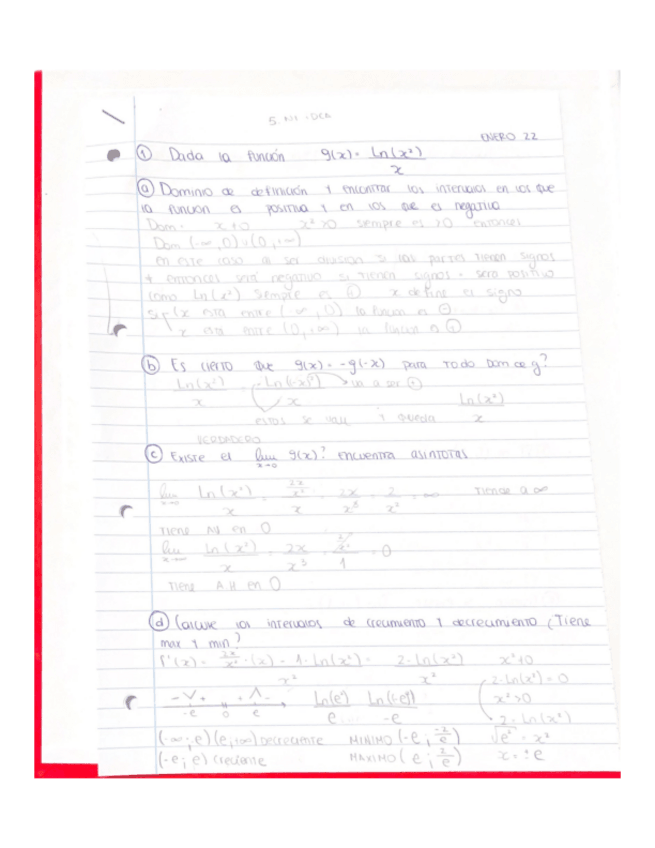 ENERO 22
① Dada la función g(x) = Ln(x²)
x
ⓐ Dominio de definición y encontrar los intervalos en los que
la función es positiva y en los que es negativa
Dom: x≠0 x²>0 siempre es >0 entonces
Dom (-∞,0)∪(0,+∞)
en este caso al ser división si las partes tienen signos
≠ entonces será negativo si tienen signos = será positivo
como Ln(x²) siempre es ⊕ x define el signo
x está entre (-∞,0) la función es ⊖
x está entre (0,+∞) la función es ⊕
ⓑ Es cierto que g(x) = -g(-x) para todo Dom de g?
Ln(x²) -Ln(-x)² va a ser ⊕
x x Ln(x²)
estos se van y queda x
VERDADERO
ⓒ Existe el lim g(x)? encuentra asíntotas
x→0
lim Ln(x²) = 2x/x² = 2x = 2 = ∞ Tiende a ∞
x→0 x x x³ x²
Tiene AV en 0
lim Ln(x²) = 2x = = 0
x x³ 1
Tiene A.H en 0
ⓓ Calcule los intervalos de crecimiento y decrecimiento ¿Tiene
max y min?
f'(x) = 2x/x² · (x) - 1 · Ln(x²) = 2 - Ln(x²) x²≠0
x² x² 2-Ln(x²) = 0
-e 0 e Ln(e²) x²>0
e -e 2 = Ln(x²)
(-∞;-e)(e;+∞) Decreciente MINIMO (-e; -2/e) √e² = x²
(-e; e) creciente MAXIMO (e; 2/e) x = ±e